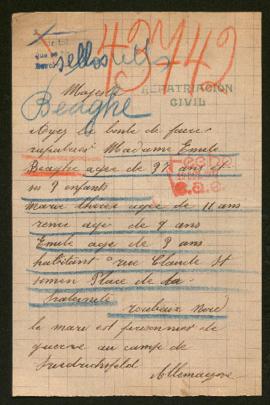 43742
sellos
Majesté
REPATRIACIÓN
CIVIL
Beaghe
Ayez la bonté de faire
rapatrier Madame Emile
Beaghe agée de 9 ans et
ses 9 enfants
Marie therese agée de 11 ans
rene age de 7 ans
Emile age de 9 ans
habitant rue Claude St
Simon Place de la
fraternité
roubaix Nord
le mari est prisonnier de
guerre au camp de
Friedrichsfeld
Allemagne